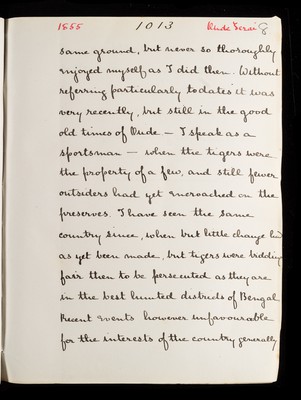 1855 1013 Oude Terai G
same ground, but never so thoroughly
enjoyed myself as I did then. Without
referring particularly to dates it was
very recently, but still in the good
old times of Oude — I speak as a
sportsman — when the tigers were
the property of a few, and still fewer
outsiders had yet encroached on the
preserves. I have seen the same
country since, when but little change had
as yet been made, but tigers were bidding
fair then to be persecuted as they are
in the best hunted districts of Bengal
Recent events however unfavourable
for the interests of the country generally